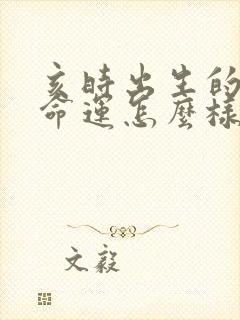 亥時出生的
命運怎麼樣
文毅